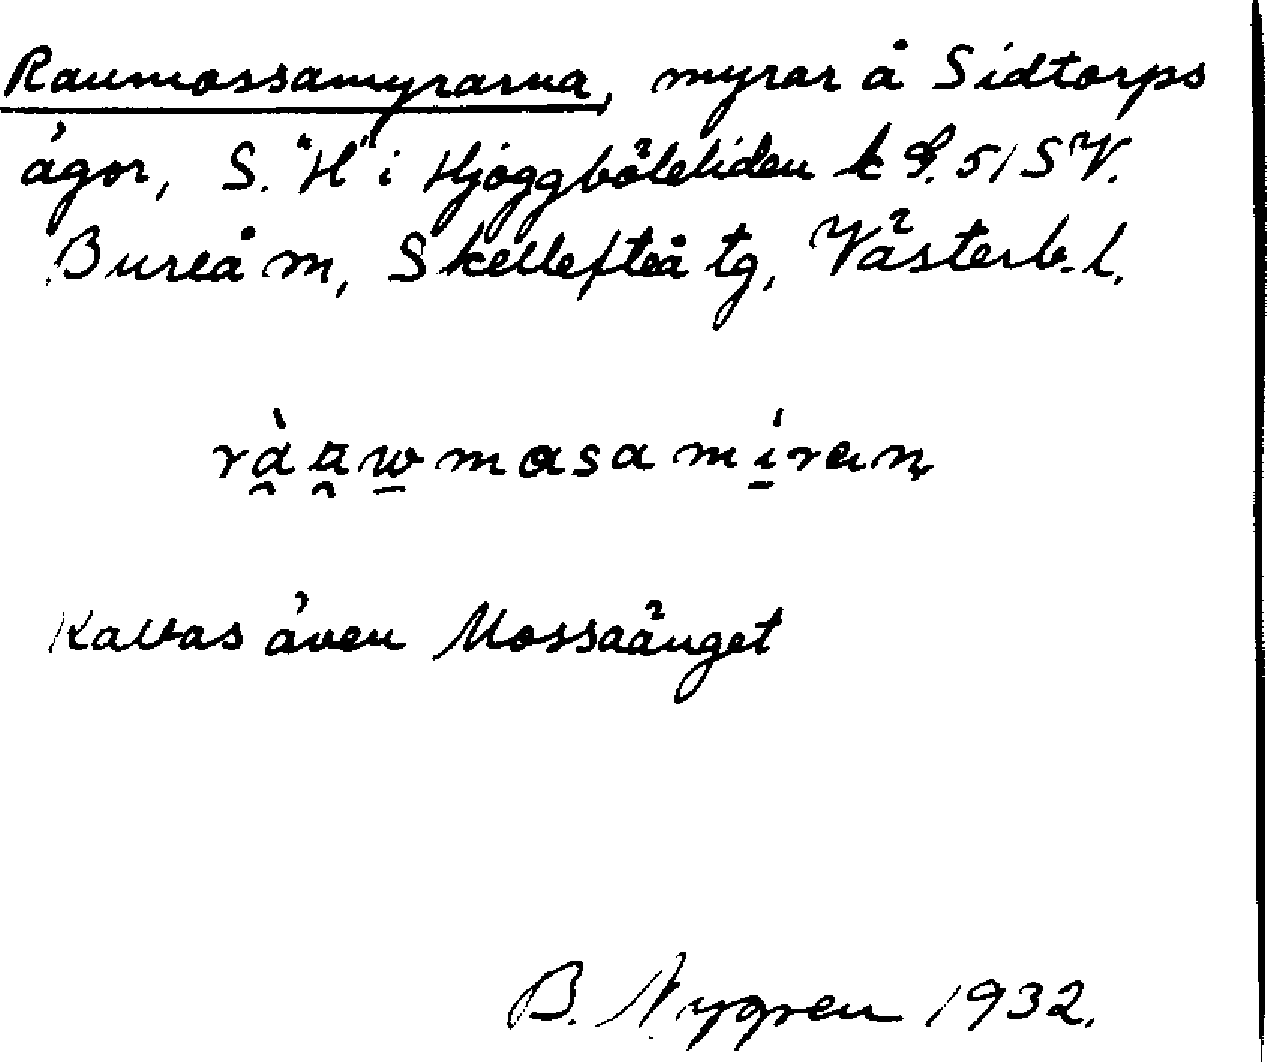 Raumossamyrarna, myrar å Sidtorps
ägor, S. "H" i Hjoggböleliden k G. 51 SV.
Bureå m, Skellefteå tg, Västerb. l.
rà̯a̯w̲masamí̲ran̥
Kallas även Mossaänget
B. Nygren 1932.